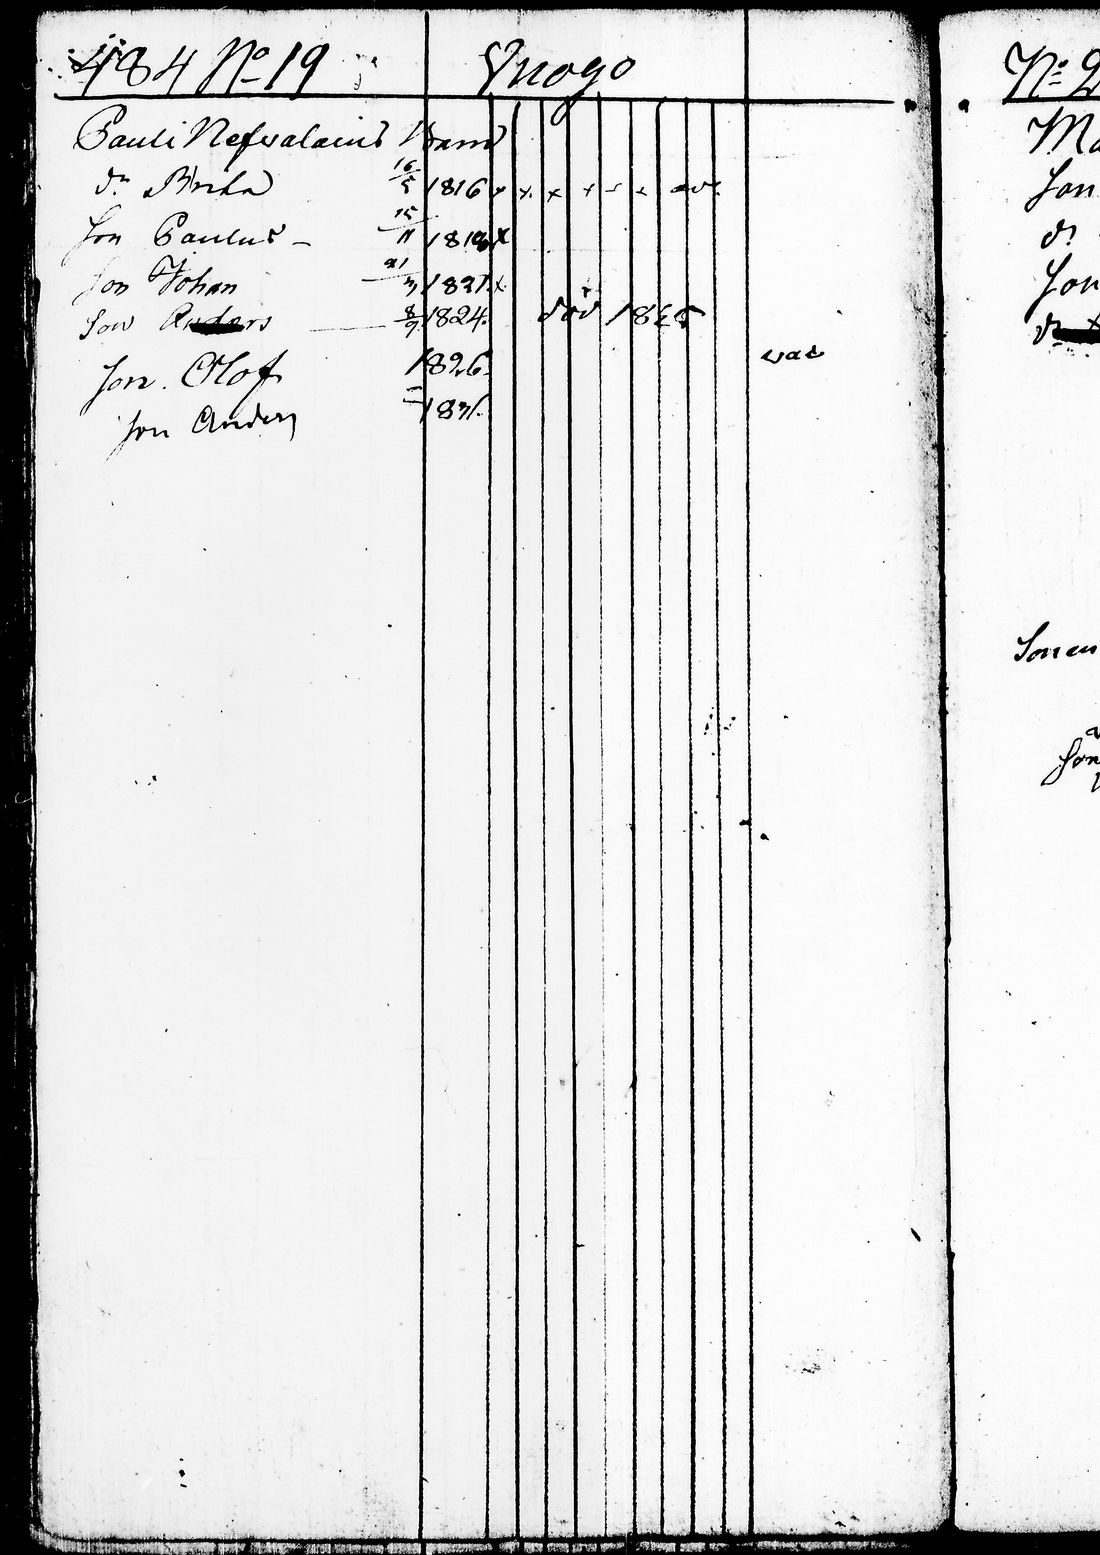 484 No 19 Vuogo
Pauli Nefvalainś Barn
dr Brita 16/5 1816 x x x + - x
Son Paulus - 15/11 1818 x
Son Johan 21/3 1821 x
Son Anders 8/9 1824. död 18
Son. Olof 1826. vac
Son Anders 1831.
No 2
Ma
Son
dr
Son
dr
Sonen
Son